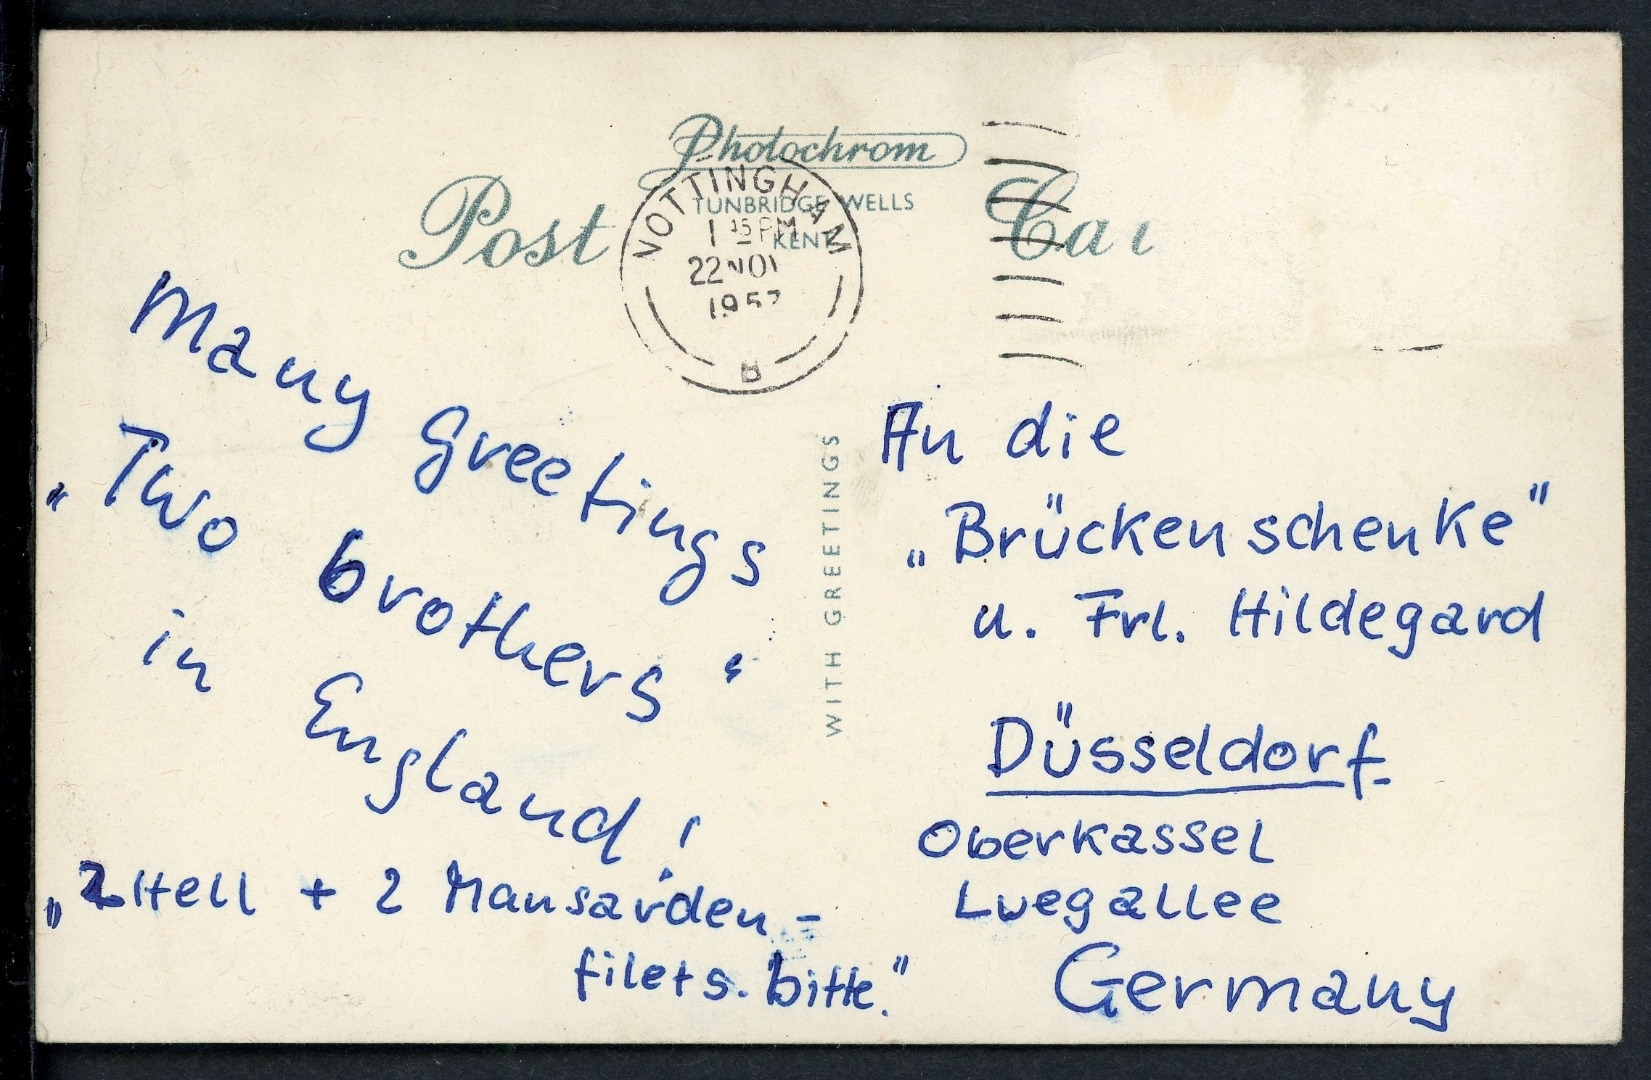 Photochrom
TUNBRIDGE WELLS
KENT
Post Car
NOTTINGHAM
1 15 PM
22 NOV
1957
Many greetings
„Two brothers“
in England!
„2 Hell + 2 Mansarden-
filets. bitte."
WITH GREETINGS
An die
„Brückenschenke"
u. Frl. Hildegard
Düsseldorf
Oberkassel
Luegallee
Germany